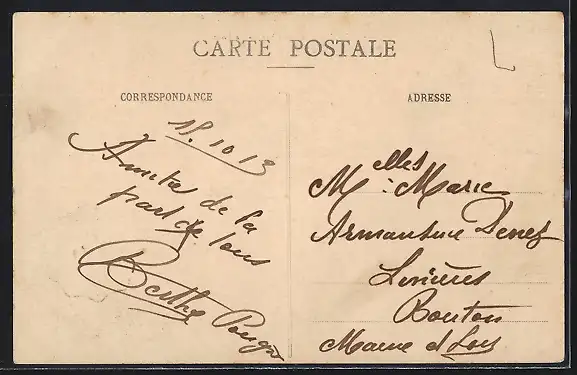 CARTE POSTALE
CORRESPONDANCE
18.10.13
Amitié de la
part de tous
Berthe
ADRESSE
Melles Marie
Armantine Denez
Bouton
Maine et Loir